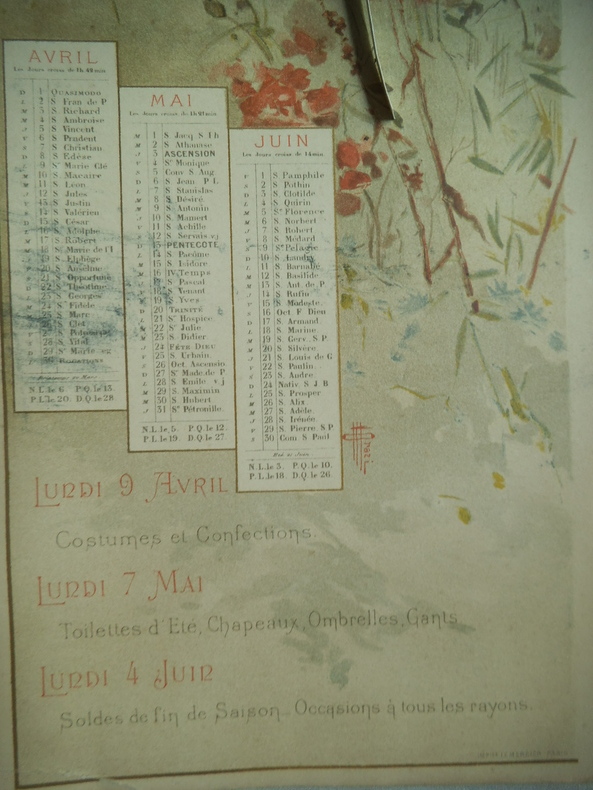 AVRIL
Les Jours crois. de 1h.40 min.
D 1 QUASIMODO
L 2 S Fran de P
M 3 S Richard
M 4 S Ambroise
J 5 S Vincent
V 6 S Prudent
S 7 S Christian
D 8 S Edèse
9 Sᵗᵉ Marie Clé
M 10 S Macaire
M 11 S Léon
J 12 S Jules
V 13 S Justin
S 14 S Valérien
D 15 S César
L 16 S Adolphe
M 17 S Robert
18 S Marie de l'I
19 S Elphège
20 S Anselme
21 S Opportune
D 22 S Théotime
23 S Georges
24 S Fidèle
25 S Marc
26 S Clet
27 S Polycarpe
28 S Vital
D 29 Sᵗ
30
N.L.le 6 P.Q.le 13.
P.L.le 20. D.Q.le 28.
MAI
M 1 S Jacq S Ph
M 2 S Athanase
J 3 ASCENSION
V 4 Sᵗᵉ Monique
S 5 Conv S Aug
D 6 S Jean P L
L 7 S Stanislas
M 8 S Désiré
M 9 S Antonin
J 10 S Mamert
V 11 S Achille
S 12 S Servais v.j
D 13 PENTECOTE
L 14 S Pacôme
M 15 S Isidore
M 16 IV Temps
J 17 S Pascal
V 18 S Venant
S 19 S Yves
D 20 TRINITÉ
L 21 Sᵗ Hospice
M 22 Sᵗᵉ Julie
M 23 S Didier
J 24 FÊTE DIEU
V 25 S Urbain
S 26 Oct. Ascensio
D 27 Sᵗ Mad.de P
L 28 S Emile v.j
M 29 S Maximin
M 30 S Hubert
J 31 Sᵗᵉ Pétronille.
N.L.le.5. P.Q.le 12.
P.L.le 19 D.Q.le 27
JUIN
Les Jours crois. de 14 min.
V 1 S Pamphile
S 2 S Pothin
D 3 S Clotilde
L 4 S Quirin
M 5 Sᵗᵉ Florence
M 6 S Norbert
J 7 S Robert
V 8 S Médard
S 9 Sᵗᵉ Pélagie
D 10 S Landry
L 11 S Barnabé
M 12 S Basilide
M 13 S Ant. de P.
J 14 S Rufin
V 15 S Modeste.
S 16 Oct F Dieu
D 17 S Armand
L 18 S Marine
M 19 S Gerv. S P
M 20 S Silvère
J 21 S Louis de G
V 22 S Paulin
S 23 S Andre
D 24 Nativ S J B
L 25 S Prosper
M 26 S Alix
M 27 S Adèle.
J 28 S Irénée.
V 29 S Pierre. S P
S 30 Com S Paul
N.L.le.3. P.Q.le 10.
P.L.le 18 D.Q.le 26.
LUNDI 9 AVRIL
Costumes et Confections.
LUNDI 7 MAI
Toilettes d'Eté, Chapeaux, Ombrelles, Gants.
LUNDI 4 JUIN
Soldes de fin de Saison. Occasions à tous les rayons.